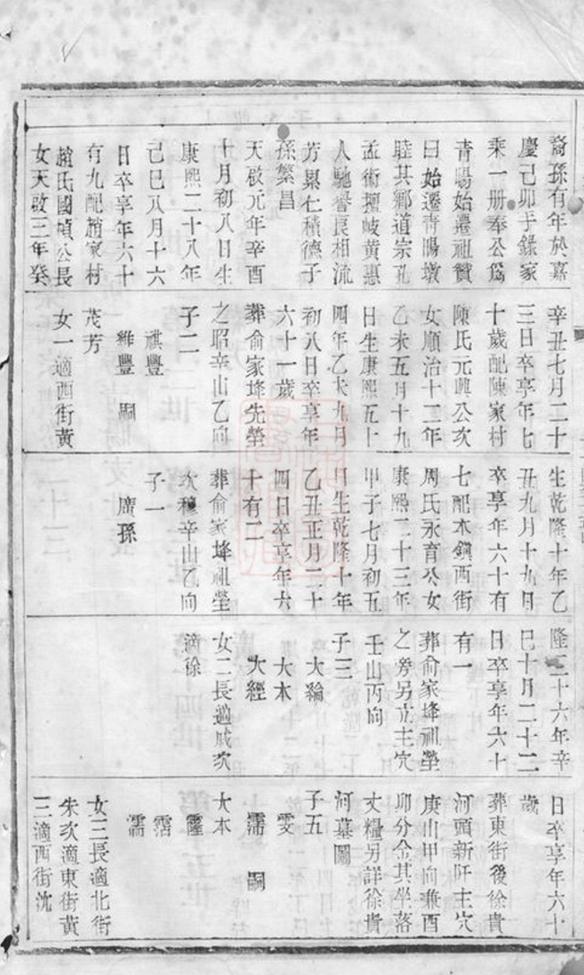 裔孫有年於嘉
慶己卯手錄家
乘一册奉公爲
青暘始遷祖贊
曰始遷青暘墩
睦其鄉道宗孔
孟術擅岐黃惠
人馳譽長相流
芳累仁積德子
孫繁昌
天啟元年辛酉
十月初八日生
康熙二十八年
己巳八月十六
日卒享年六十
有九配趙家村
趙氏國頃公長
女天啟三年癸
辛丑七月二十
三日卒享年七
十歲配陳家村
陳氏元興公次
女順治十二年
乙未五月十九
日生康熙五十
四年乙未九月
初八日卒享年
六十一歲
葬俞家垾先塋
之昭辛山乙向
子二
祺豐
維豐 嗣
茂芳
女一適西街黃
生乾隆十年乙
丑九月十九日
卒享年六十有
七配本鎮西街
周氏永育公女
康熙二十三年
甲子七月初五
日生乾隆十年
乙丑正月二十
四日卒享年六
十有二
葬俞家垾祖塋
次穆辛山乙向
子一
廣孫
隆二十六年辛
巳十月二十二
日卒享年六十
有一
葬俞家垾祖塋
之旁另立主穴
壬山丙向
子三
大綸
大本
大經
女二長適戚次
適徐
日卒享年六十
歲
葬東街後徐貴
河頭新阡主穴
庚山甲向兼酉
卯分金其坐落
丈糧另詳徐貴
河墓圖
子五
雯
霈 嗣
大本
霳
霑
霈
女三長適北街
朱次適東街黃
三適西街沈